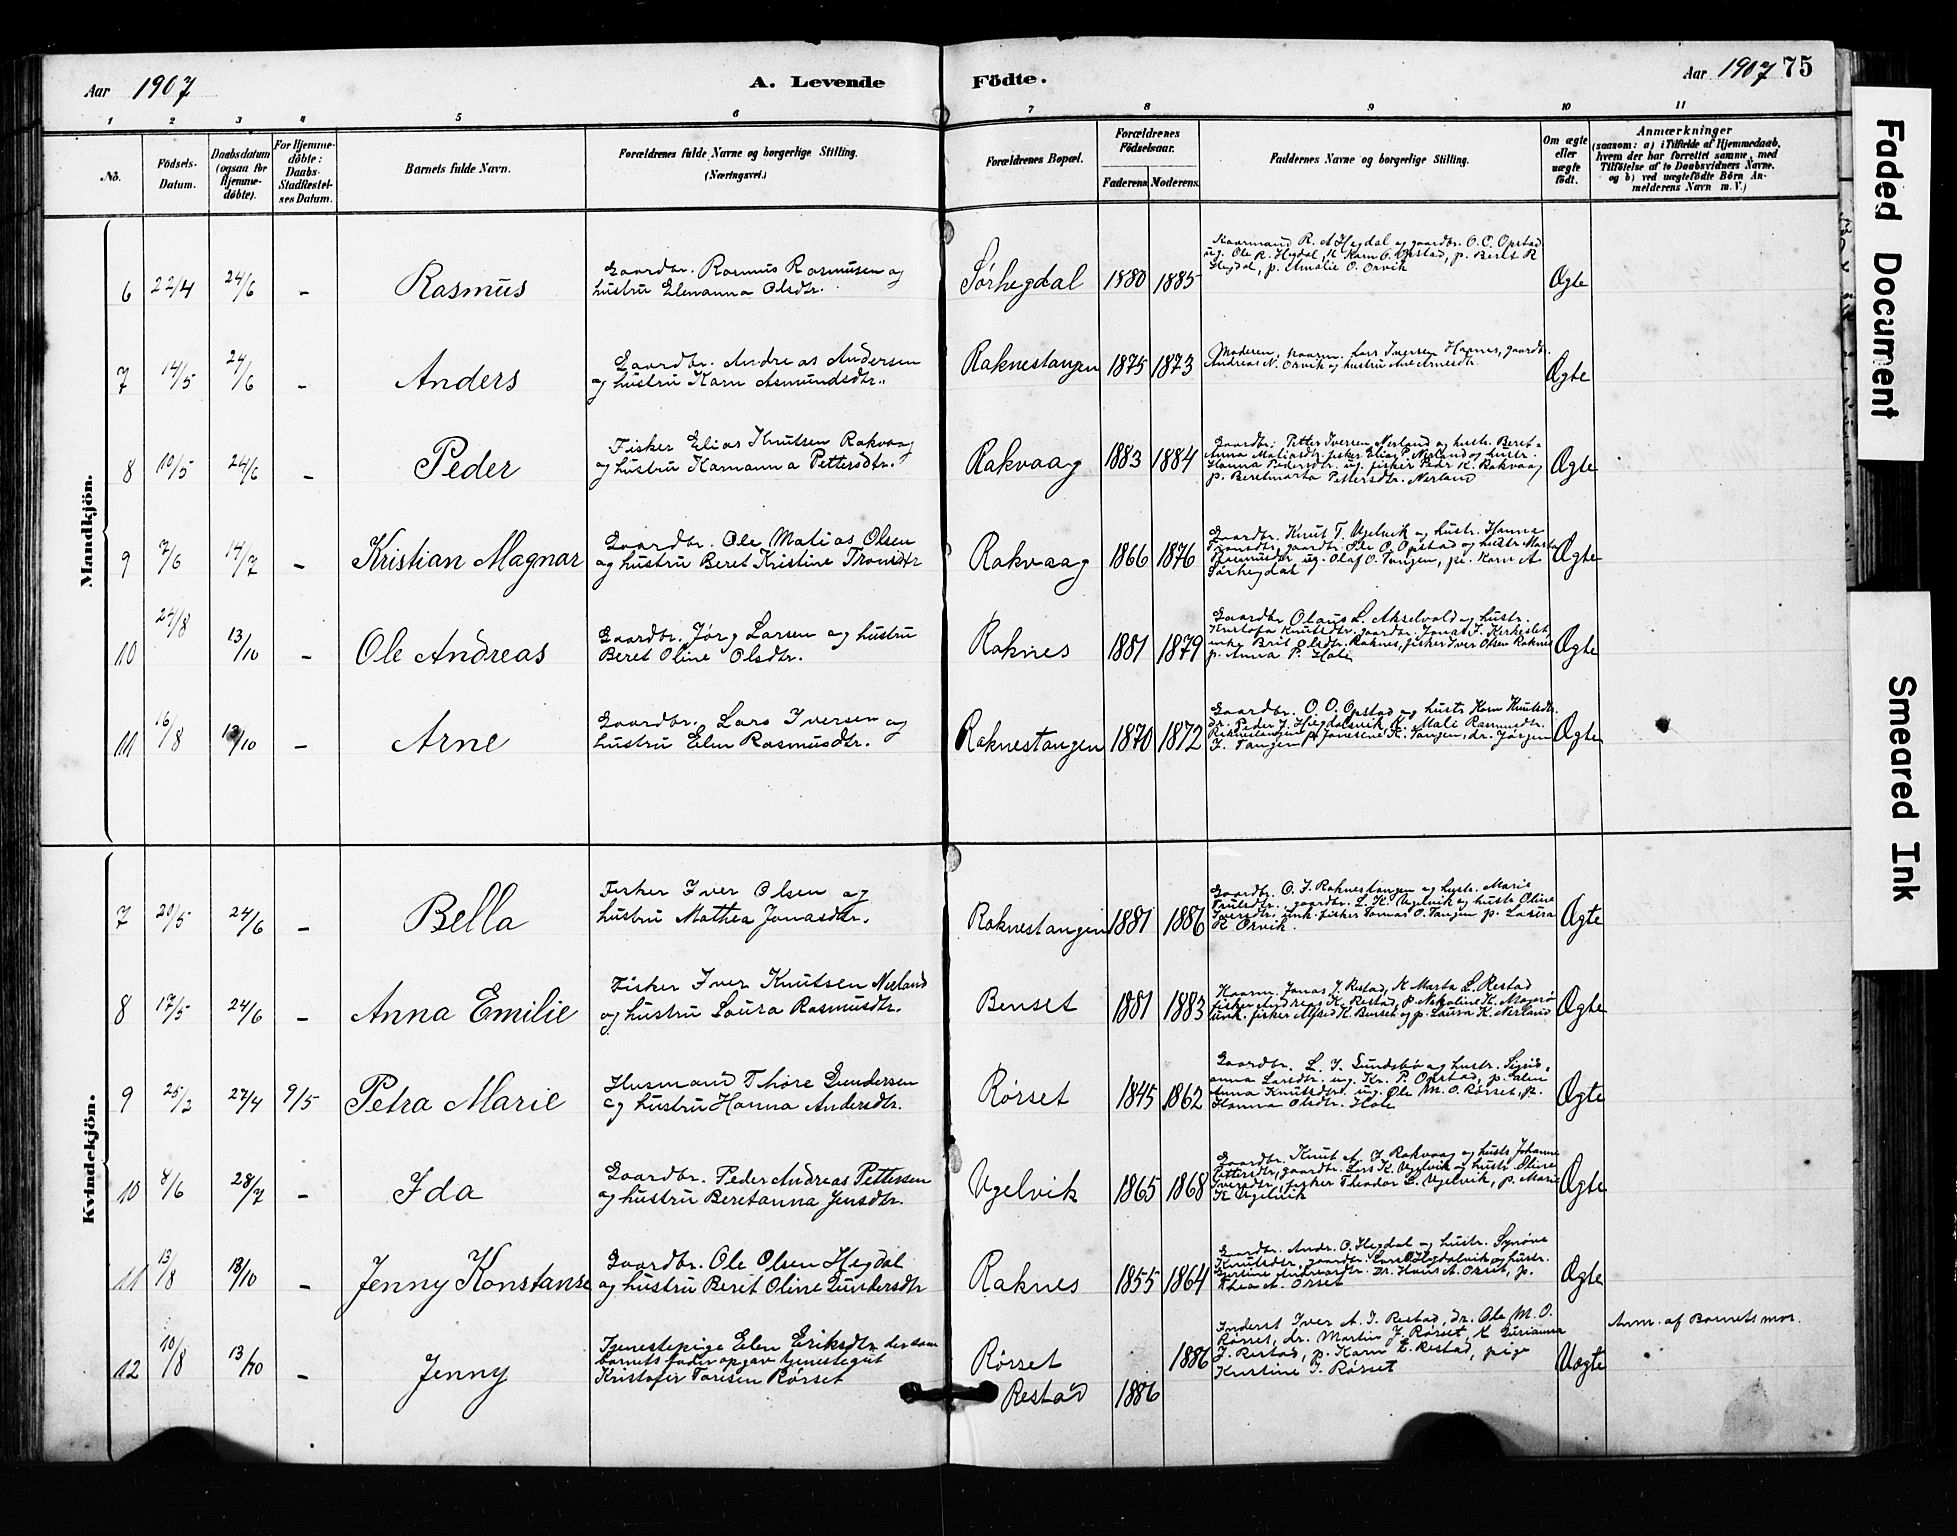 Aar 1907
A. Levende
Födte.
Aar 1907 75
1 2 3 4 5 6 7 8 9 10 11
No.
Födsels-
Datum.
Daabsdatum
(ogsaa for
Hjemme-
döbte).
For Hjemme-
döbte:
Daabs-
Stadfæstel-
ses Datum.
Barnets fulde Navn.
Forældrenes fulde Navne og borgerlige Stilling.
(Næringsvei.)
Forældrenes Bopæl.
Forældrenes
Födselsaar.
Faderens. Moderens.
Faddernes Navne og borgerlige Stilling.
Om ægte
eller
uægte
födt.
Anmærkninger
(saasom: a) i Tilfælde af Hjemmedaab,
hvem der har forrettet samme, med
Tilföielse af to Daabsvidners Navne.
og b) ved uægtefödte Börn An-
melderens Navn m. V.)
Mandkjön.
6 22/4 24/6 - Rasmus
Gaardbr. Rasmus Rasmusen og
hustru Elenanna Olsdtr.
Sørhegdal 1880 1885
Kaarmand R. A Hegdal og gaardbr. O. O. Opstad
ug. Ole R. Hegdal, K Karn O. Opstad, p. Berit R
Hegdal, p. Amalie O. Orvik
Ægte
7 14/5 24/6 - Anders
Gaardbr. Andreas Andersen
og hustru Karn Asmundsdtr.
Raknestangen 1875 1873
Moderen, kaarm. Lars Iversen Hagnes, gaardbr.
Andreas N. Orvik og hustru Ane Arnesdtr.
Ægte
8 10/5 24/6 - Peder
Fisker Elias Knutsen Rakvaag
og hustru Karnanna Pettersdtr.
Rakvaag 1883 1884
Gaardbr. Petter Iversen Nerland og hustr. Beret-
Anna Matiasdtr. fisker Elias P. Nerland og hustr.
Hanna Pedersdtr. ug. fisker Peder K. Rakvaag
p. Beretmarta Pettersdtr. Nerland
Ægte
9 7/6 14/7 - Kristian Magnar
Gaardbr. Ole Matias Olsen
og hustru Beret Kristine Tronsdtr
Rakvaag 1866 1876
Gaardbr. Knut T. Ugelvik og hustr. Hanna
Tronsdtr, gaardbr. Ole O. Opstad og hustr. Marta
Rasmusdtr, ug. Olaf O. Tangen, pi. Karn A
Sørhegdal
Ægte
10 24/8 13/10 - Ole Andreas
Gaardbr. Jørg Larsen og hustru
Beret Oline Olsdtr.
Raknes 1881 1879
Gaardbr Olaus L. Akselvold og hustr.
Kristofa Knutsdtr. gaardbr. Jonas J.
enke Brit Olsdtr. Raknes, fisker Iver Olsen Raknes
p. Anna P. Hole
Ægte
11 16/8 13/10 - Arne
Gaardbr. Lars Iversen og
hustru Elen Rasmusdtr.
Raknestangen 1870 1872
Gaardbr. O. O. Opstad og hustr Karn Knutsdtr.
dr. Peder J. Hegdalsvik K. Mali Rasmusdtr.
Raknestangen p. Jonsine K. Tangen, dr. Jørgen
I. Tangen
Ægte
Kvindekjön.
7 20/5 24/6 - Bella
Fisker Iver Olsen og
hustru Mathea Jonasdtr.
Raknestangen 1881 1886
Gaardbr. O. I. Raknestangen og hustr. Marie
Knutsdtr., gaardbr. L. K. Ugelvik og hustr Oline
Iversdtr. unk. fisker Tomas O. Tangen p. Lovisa
K Orvik.
Ægte
8 17/5 24/6 - Anna Emilie
Fisker Iver Knutsen Nerland
og hustru Laura Rasmusdtr.
Benset 1881 1883
Kaarm. Jonas J. Restad, K Marta L. Restad
fisker Andreas K. Restad, p. Nikoline K. Magerø
unk. fisker Alfred K. Benset og p. Laura K. Nerland
Ægte
9 25/2 27/4 9/5 Petra Marie
Husmand Thore Gundersen
og hustru Hanna Andersdtr.
Rørset 1845 1862
Gaardbr. L. J. Sundsbø og hustr. Sigrid-
anna Larsdtr. ug. Kr. P. Opstad, p. Elen
Anna Knutsdtr. ug. Ole M. O. Rørset, p.
Hanna Olsdtr. Hole
Ægte
10 8/6 28/7 - Ida
Gaardbr. Peder Andreas Pettersen
og hustru Beretanna Jensdtr.
Ugelvik 1865 1868
Gaardbr. Knut A. I. Rakvaag og hustr Johanna
Pettersdtr, gaardbr. Lars K. Ugelvik og hustr. Oline
Iversdtr, fisker Theodor L. Ugelvik, p. Marie
K Ugelvik
Ægte
11 13/8 13/10 - Jenny Konstanse
Gaardbr. Ole Olsen Hegdal
og hustru Beret Oline Gundersdtr
Raknes 1855 1864
Gaardbr. Andr. O. Hegdal og hustr. Synøve
Knutsdtr, gaardbr. Lars Hegdalsvik og hustr.
Andreasdtr. Dr. Hans A. Orset, p.
Thea A. Orset
Ægte
12 10/8 13/10 - Jenny
Tjenestepige Elen Eriksdtr, der som
barnets fader opgav tjenestegut
Kristofer Toresen Rørset
Rørset 1886
Restad 1886
Inderst Iver A. I. Restad, dr. Ole M. O.
Rørset, dr. Martin J. Rørset, K Gurianna
J. Restad, p. Karn E. Restad, pige
Kristine I. Rørset
Uægte
Anm. af Barnets mor.
Faded Document
Smeared Ink